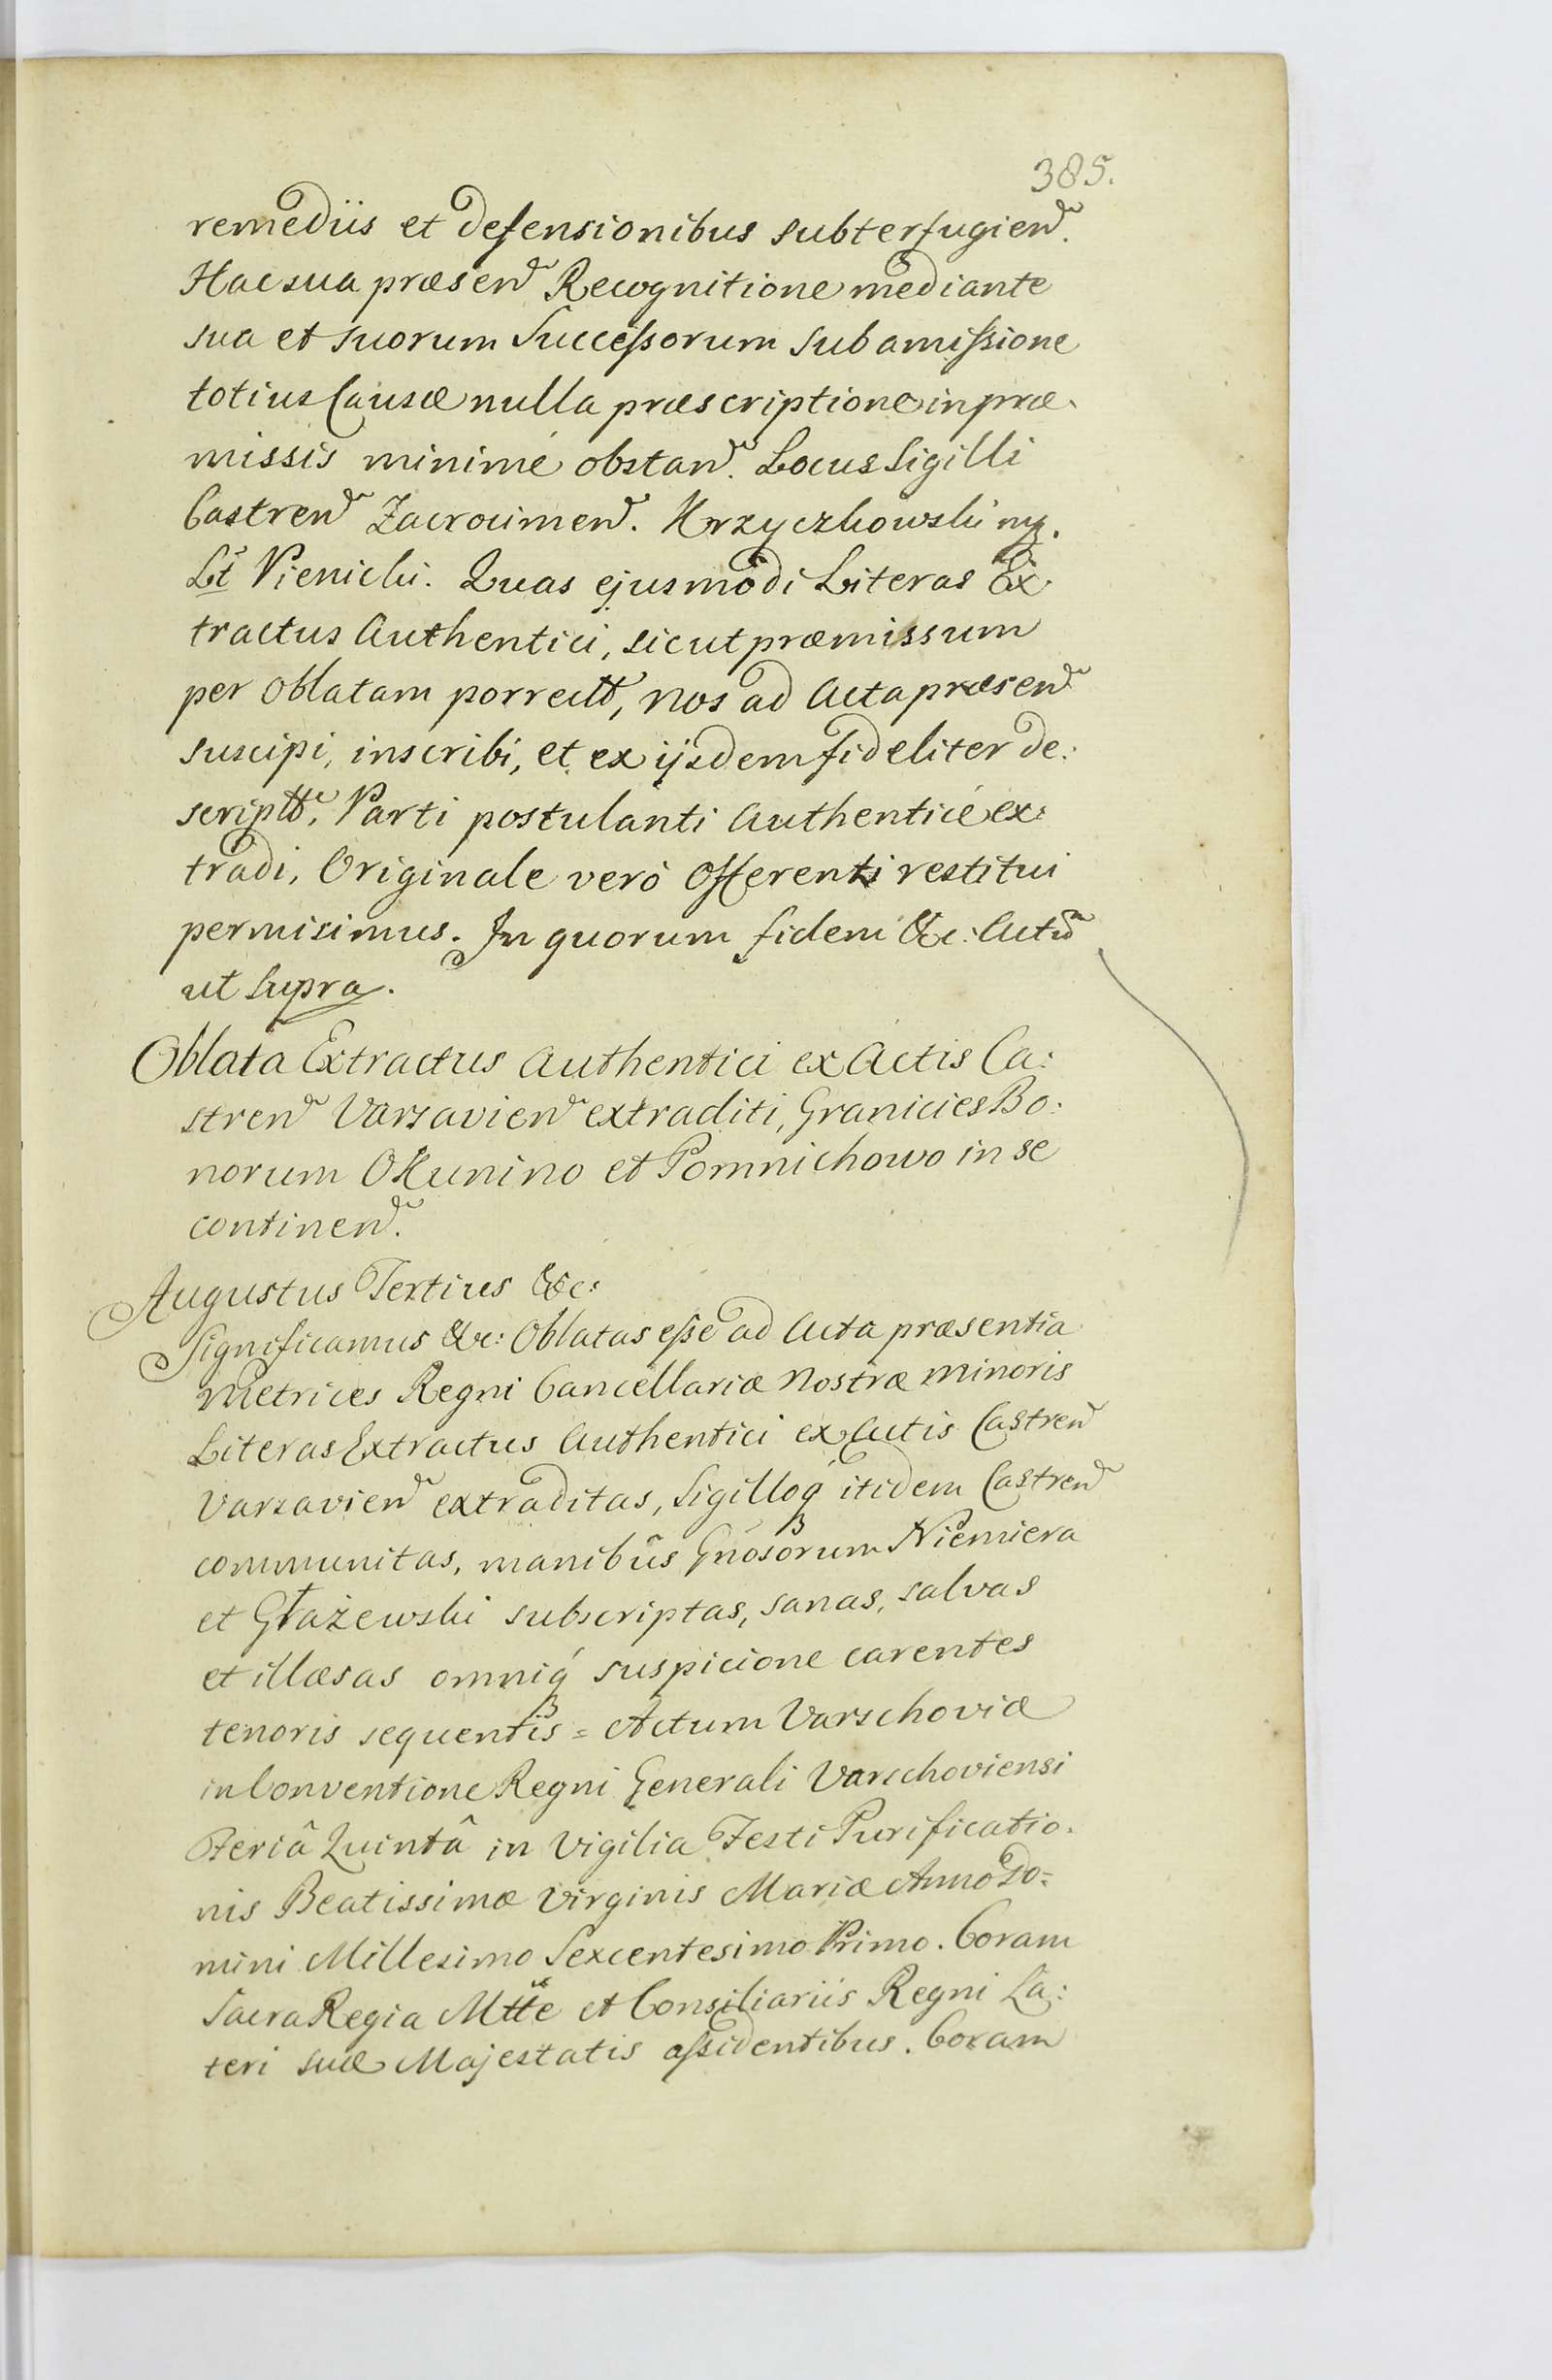 385.
remediis et defensionibus subterfugien.
Hac sua præsen Recognitione mediante
sua et suorum Successorum sub amissione
totius Causæ nulla præscriptione in præ-
missis minimé obstan. Locus Sigilli
Castren Zacrocimen. Krzyczkowski mp.
Lt Pienicki. Quas ejusmodi Literas Ex-
tractus Authentici, sicut præmissum
per oblatam porrectt, nos ad Acta præsen
suscipi, inscribi, et ex ijsdem fideliter de:
scriptt, Parti postulanti Authenticé ex:
tradi, Originale verò Offerenti restitui
permisimus. In quorum fidem &c: Actu
ut supra.
Oblata Extractus Authentici ex Actis Ca:
stren Varsavien extraditi, Granicies Bo:
norum Okunino et Pomnichowo in se
continen.
Augustus Tertius &c:
Significamus &c: Oblatas esse ad Acta præsentia
Metrices Regni Cancellariæ Nostræ Minoris
Literas Extractus Authentici ex Actis Castren
Varsavien extraditas, Sigilloq́ itidem Castren
communitas, manibus Gnosorum Niemiera
et Głażewski subscriptas, sanas, salvas
et illæsas omniq́ suspicione carentes
tenoris sequentis = Actum Varschoviæ
in Conventione Regni Generali Varschoviensi
Feriâ Quintâ in Vigilia Festi Purificatio-
nis Beatissimæ Virginis Mariæ Anno Do=
mini Millesimo Sexcentesimo Primo. Coram
Sacra Regia Mtte et Consiliariis Regni La:
teri suæ Majestatis assidentibus. Coram